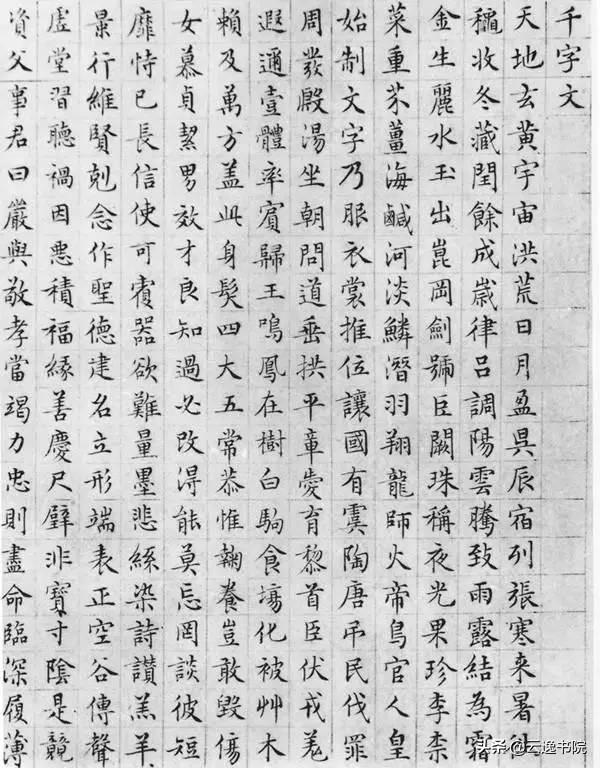 千字文
天地玄黄宇宙洪荒日月盈昃辰宿列張寒来暑往
穐收冬藏閏餘成嵗律吕調陽雲騰致雨露結為霜
金生麗水玉出崑岡劍號巨闕珠稱夜光果珍李柰
菜重芥薑海鹹河淡鱗潛羽翔龍師火帝鳥官人皇
始制文字乃服衣裳推位讓國有虞陶唐弔民伐罪
周發殷湯坐朝問道垂拱平章愛育黎首臣伏戎羌
遐邇壹體率賓歸王鳴鳳在樹白駒食場化被艸木
賴及萬方盖此身髮四大五常恭惟鞠養豈敢毁傷
女慕貞潔男效才良知過必改得能莫忘罔談彼短
靡恃己長信使可覆器欲難量墨悲絲染詩讚羔羊
景行維賢剋念作聖德建名立形端表正空谷傳聲
虚堂習聽禍因悪積福縁善慶尺璧非寳寸陰是競
資父事君曰嚴與敬孝當竭力忠則盡命臨深履薄
头条 @云逸书院